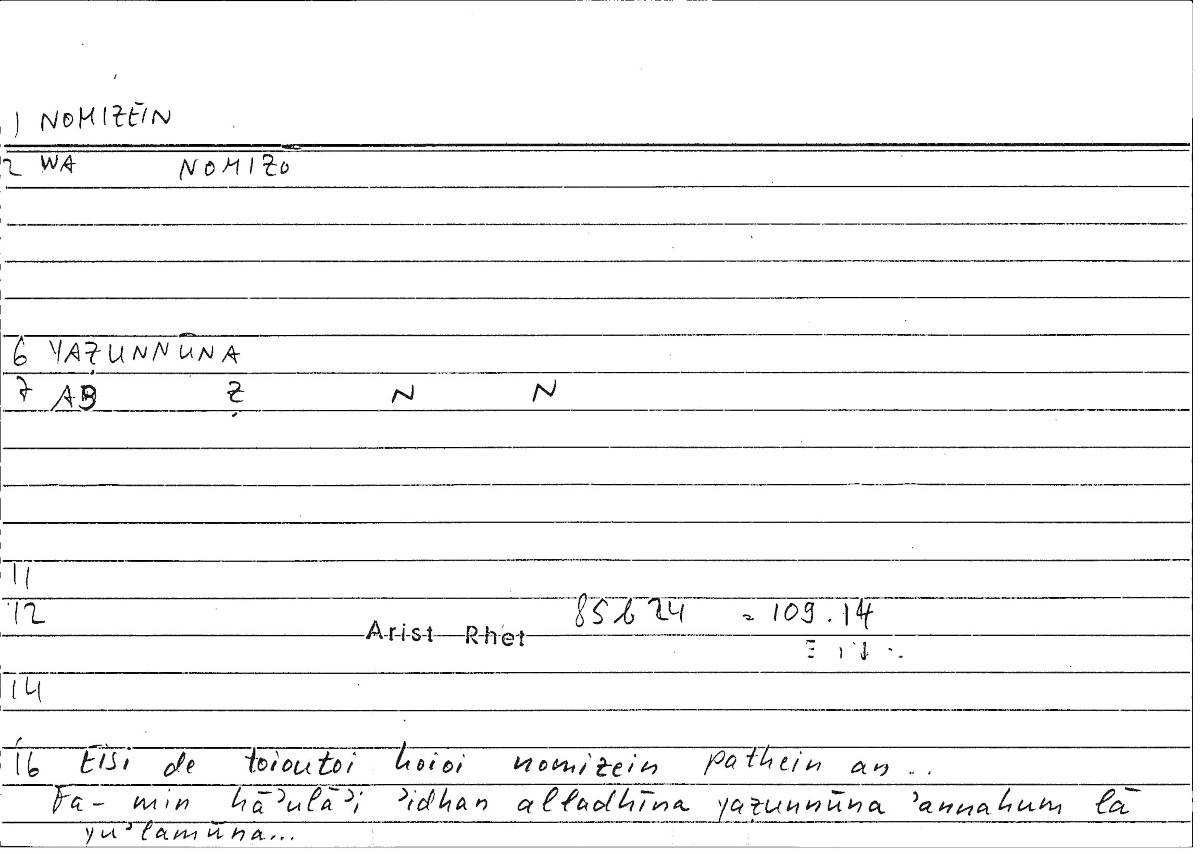 1 NOMIZEĪN
2 WA NOMIZO
6 YAẒUNNŪNA
7 AB Ẓ N N
11
12 Arist Rhet 85b24 = 109.14
14
16 Eisi de toioutoi hoioi nomizein pathein an..
Fa- min hāʾulāʾi ʾidhan alladhīna yaẓunnūna ʾannahum lā
yuʾlamūna...